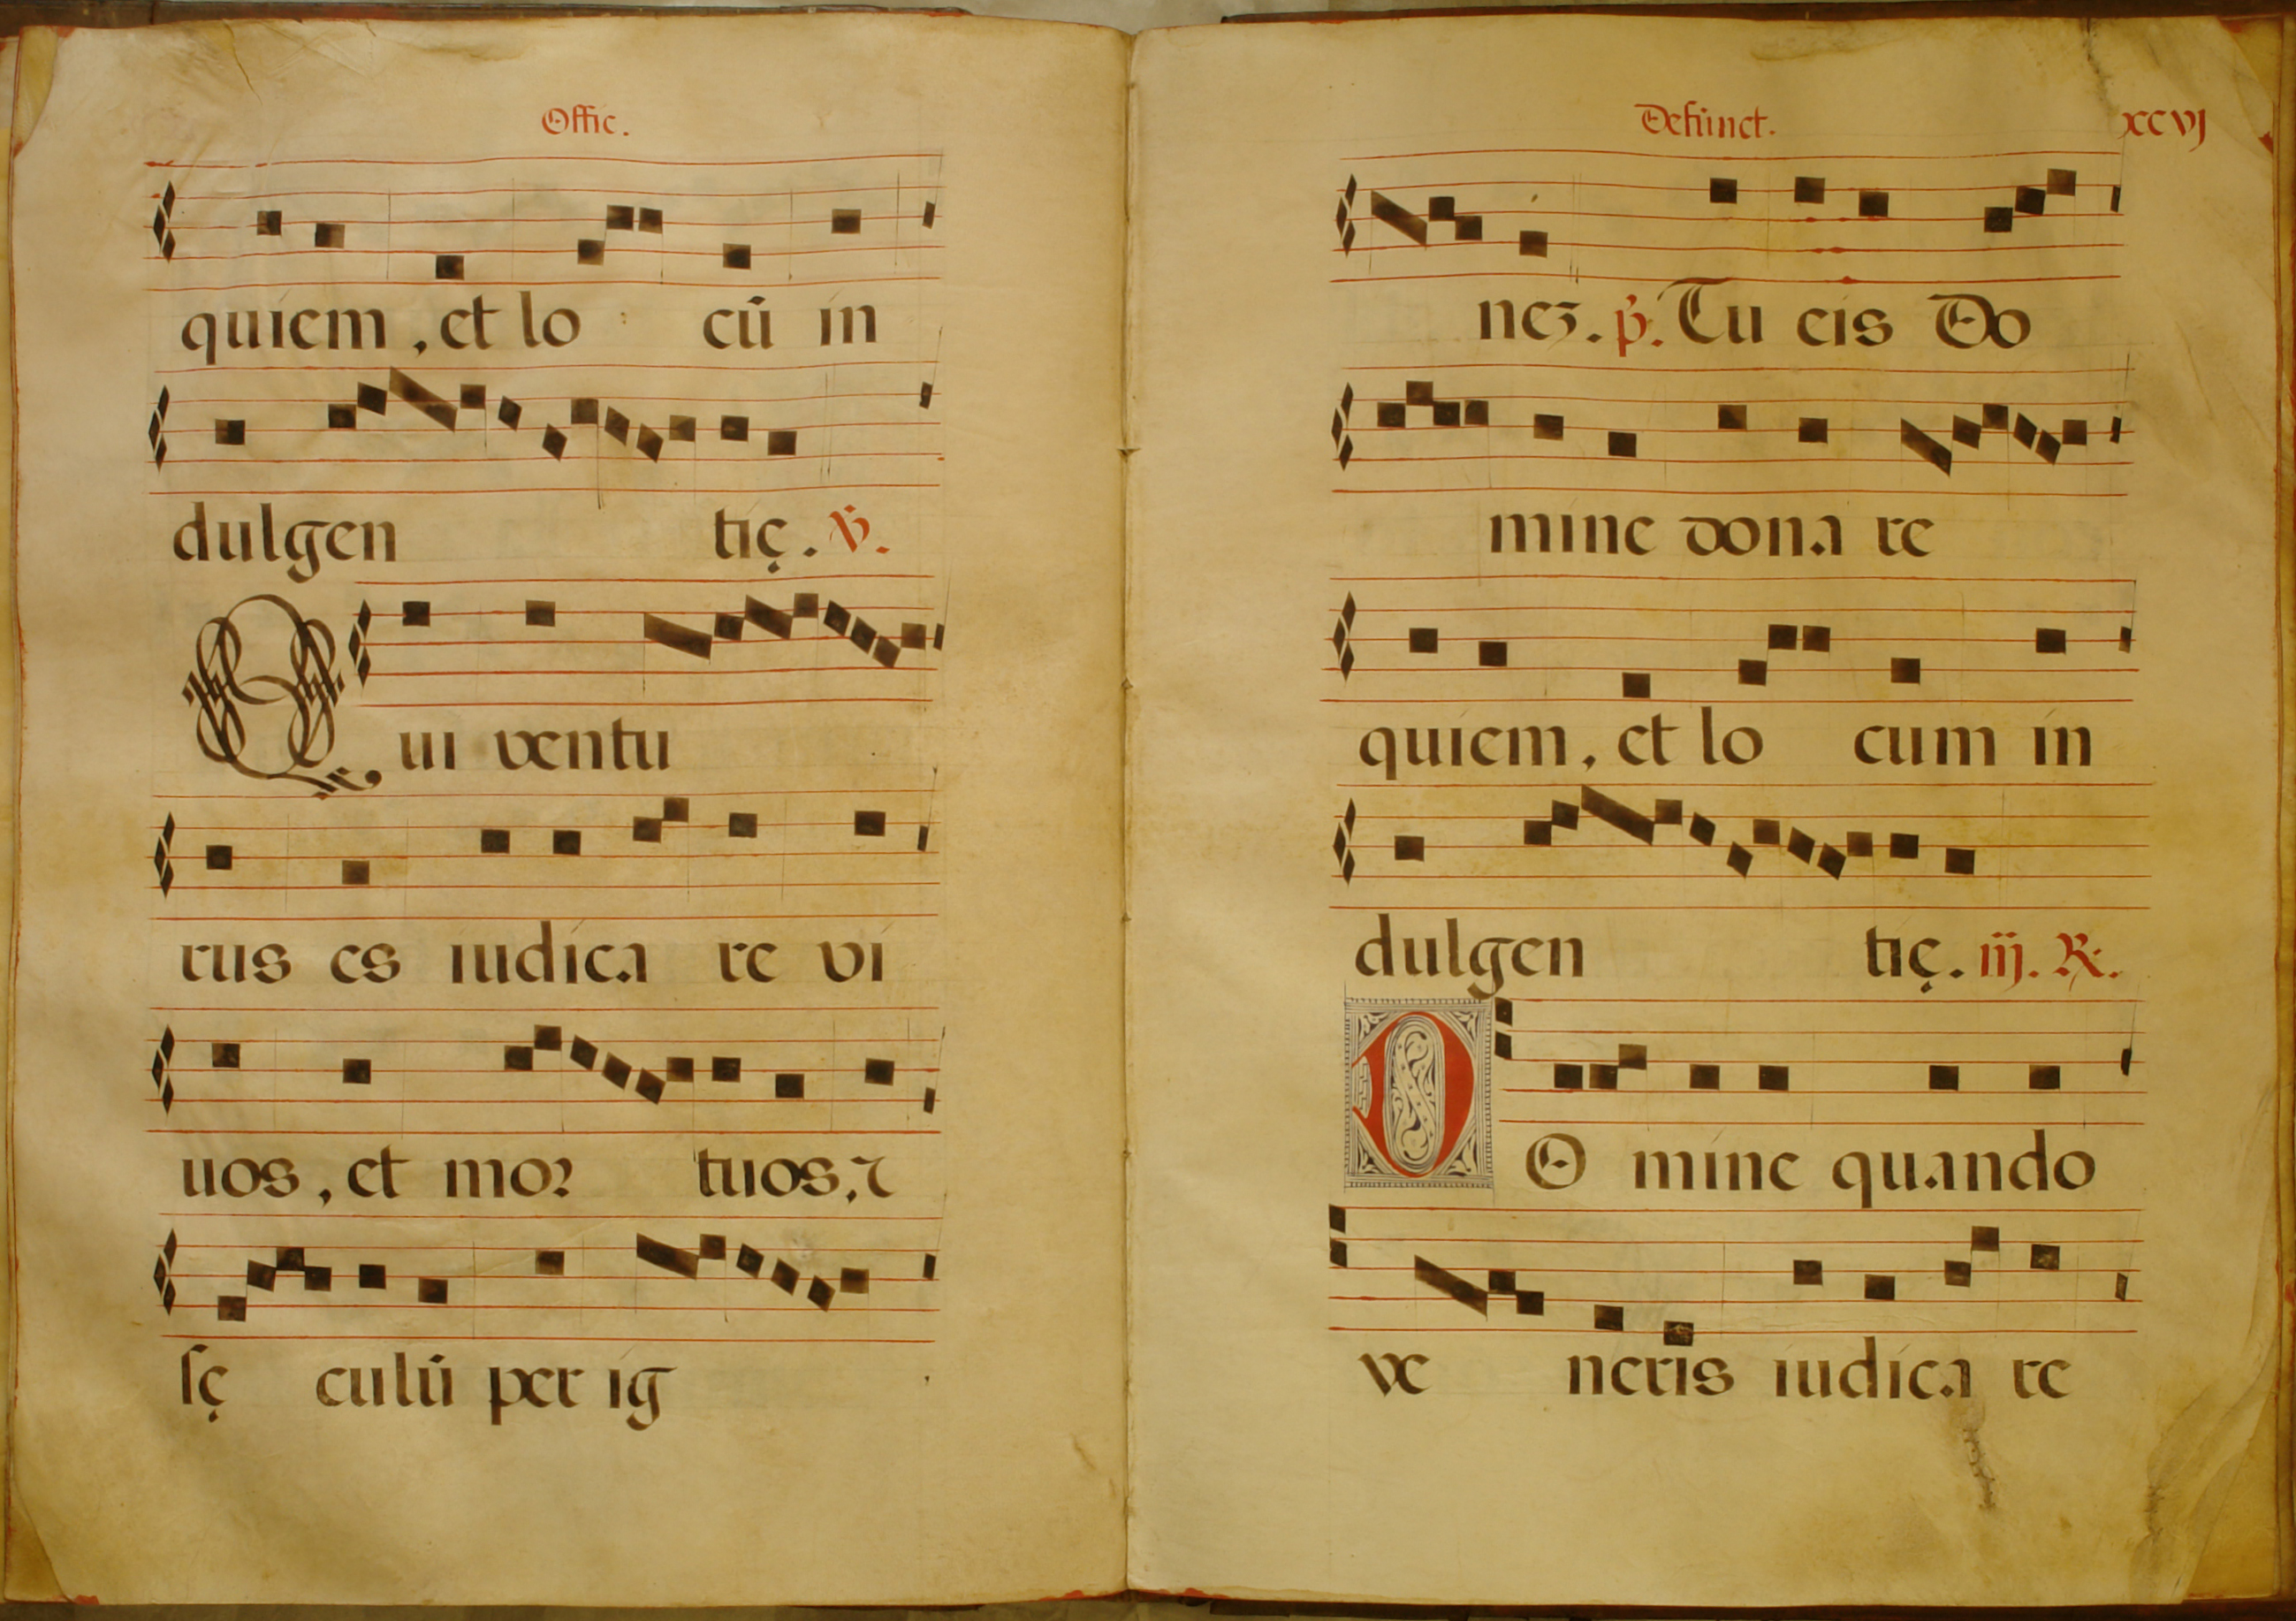 Offic.
quiem, et lo cū in
dulgen tię. ℣.
Qui ventu
rus es iudica re vi
uos, et moꝛ tuos, ⁊
ſę culū per ig
Defunct. xcvj
neʒ. p̄. Tu eis Do
mine dona re
quiem, et lo cum in
dulgen tię. iij. ℞.
DO mine quando
ve neris iudica re